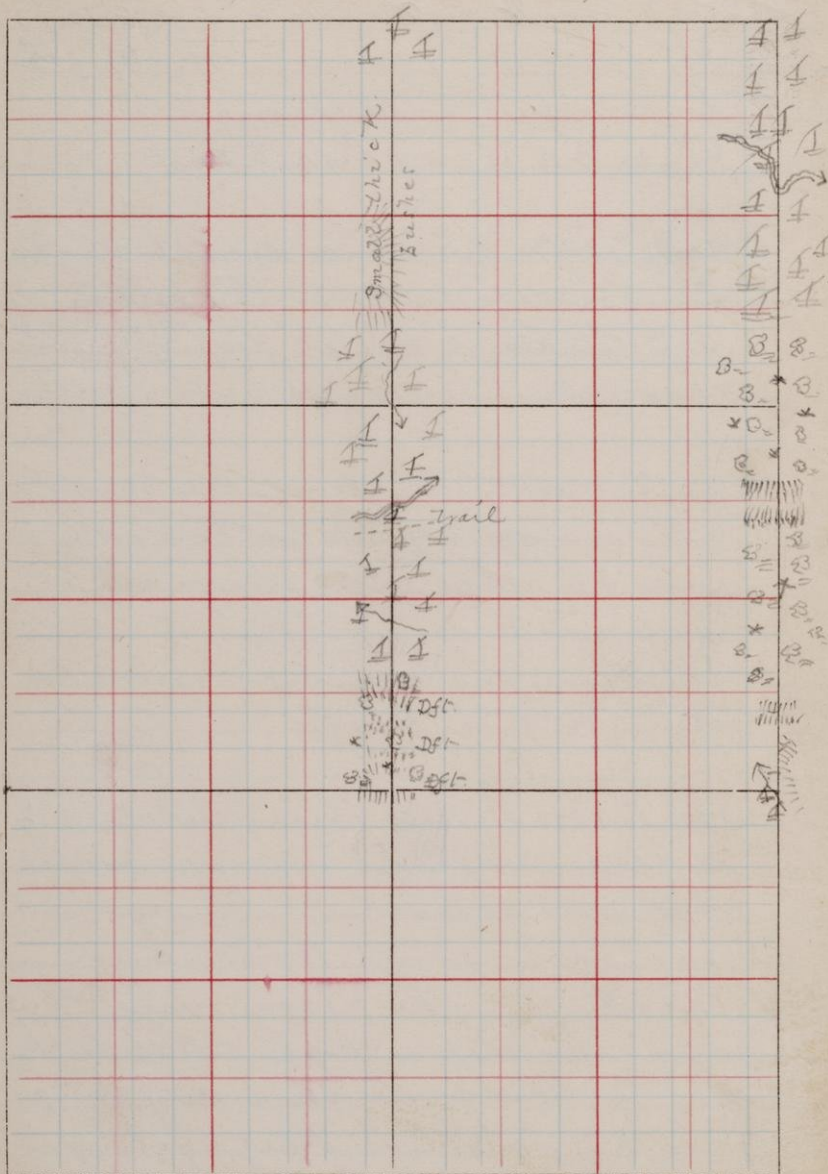 Small thick
Bushes
trail
Dft.
Dft.
Dft.